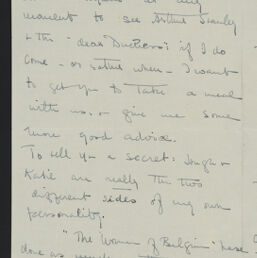 moment to see Arthur Stanley
& the "dear Duchess"; if I do
come - or rather when - I want
to get you to take a meal
with us, & give me some
more good advice.
To tell you a secret: Hugh &
Katie are really the two
different sides of my own
personality.
"The Women of Belgium" have
done as much